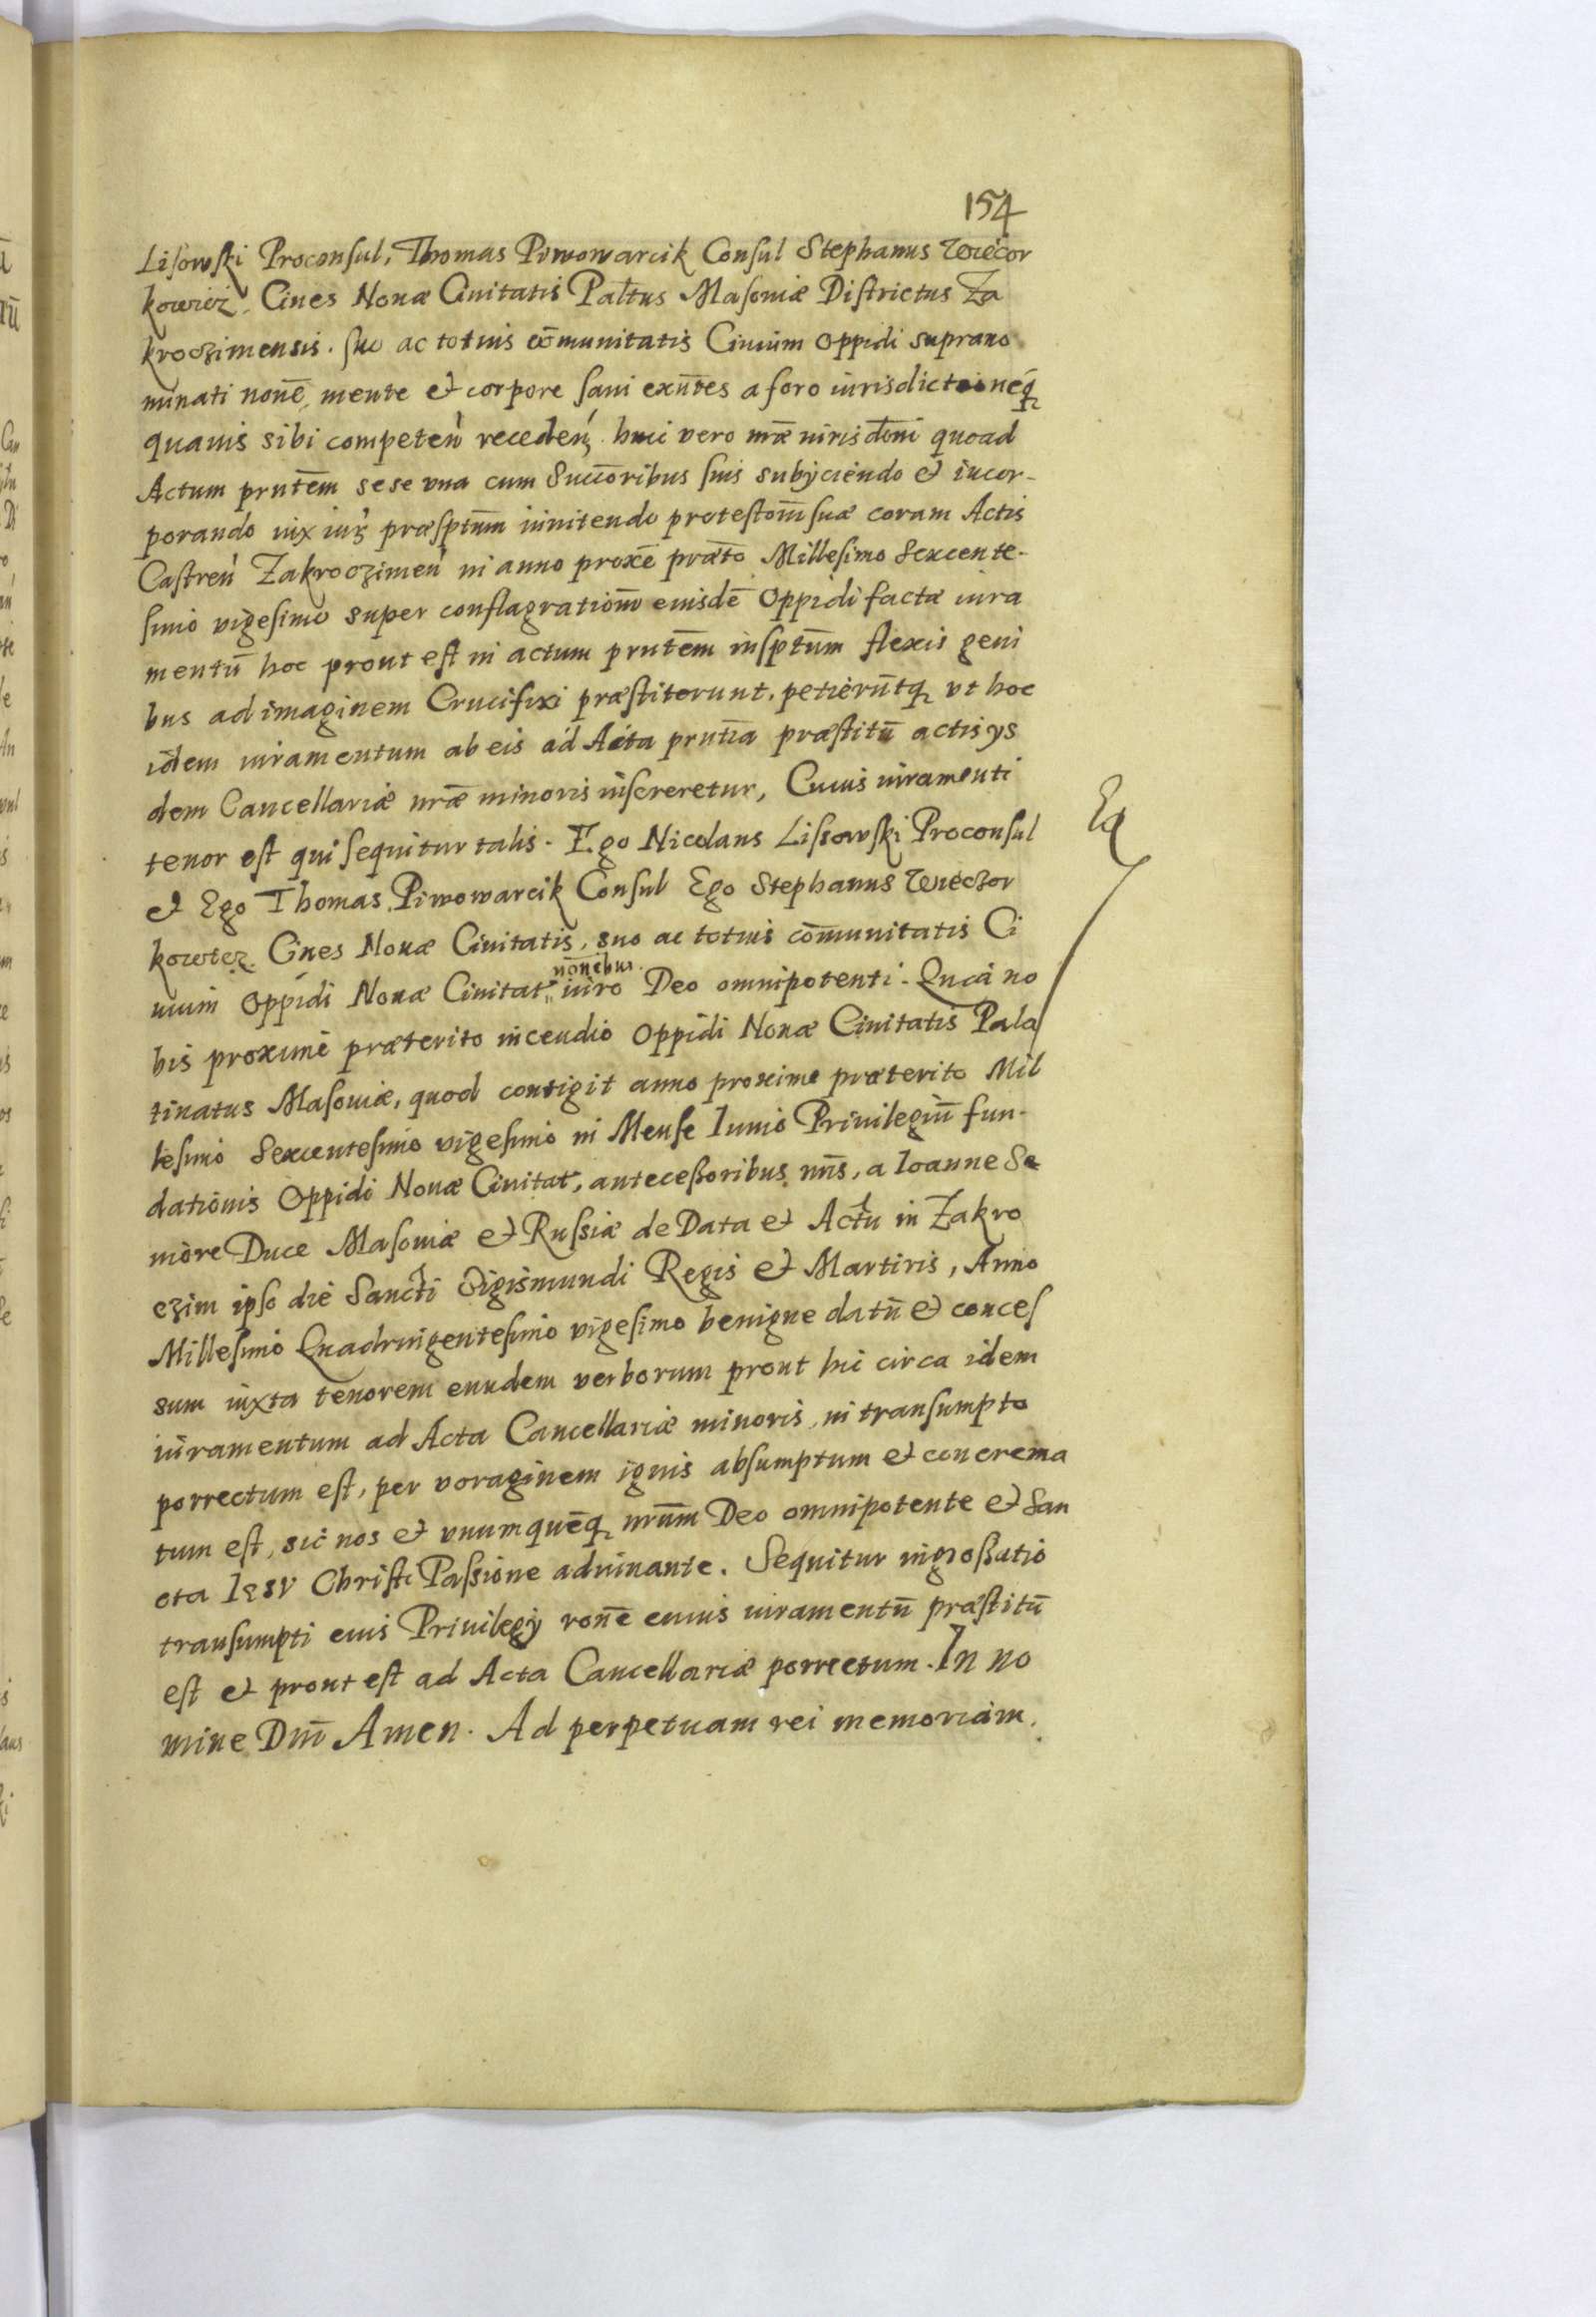 154
Lisowski Proconsul, Thomas Piwowarcik Consul Stephanus Wiecor
kowicz. Ciues Nouæ Ciuitatis Paltus Masouiæ Districtus Za
kroczimensis. suo ac totius cōmunitatis Ciuium Oppidi suprano
minati noīe, mente et corpore sani exn̄tes a foro iurisdictioneq
quauis sibi competeń recedeń. huic vero nræ iurisdōni quoad
Actum prntēm sese vna cum Succoribus suis subÿciendo et incor-
porando iux præsptum innitendo protestōni suæ coram Actis
Castreń Zakroczimeń in anno proxē præto Millesimo Sexcente-
simo vigesimo super conflagrationē eiusdē Oppidi factæ iura
mentū hoc prout est in actum prntēm insptūm flexis geni
bus ad imaginem Crucifixi præstiterunt. petierūtq vt hoc
idem iuramentum ab eis ad Acta prntia præstitū actis ys
dem Cancellariæ nræ minoris insereretur, Cuius iuramenti
tenor est qui sequitur talis. Ego Nicolaus Lissowski Proconsul
et Ego Thomas Piwowarcik Consul Ego Stephanus Wieczor
kowicz. Ciues Nouæ Ciuitatis, suo ac totius cōmunitatis Ci
uium Oppidi Nouæ Ciuitat nōnebus iuro Deo omnipotenti. Quia no
bis proxime præterito incendio Oppidi Nouæ Ciuitatis Pala
tinatus Masouiæ, quod contigit anno proxime præterito Mil
lesimo Sexcentesimo vigesimo in Mense Iunio Priuilegiū fun-
dationis Oppidi Nouæ Ciuitat, antecessoribus nr̄is, a Ioanne Se
niore Duce Masouiæ et Russiæ de Data et Actu in Zakro
czim ipso die Sancti Sigismundi Regis et Martiris, Anno
Millesimo Quadringentesimo vigesimo benigne datū et conces
sum iuxta tenorem eundem verborum prout hic circa idem
iuramentum ad Acta Cancellariæ minoris, in transumpto
porrectum est, per voraginem ignis absumptum et concrema
tum est, sic nos et vnumquēq nrūm Deo omnipotente et San
cta Iesv Christi Passione adiuuante. Sequitur ingrossatio
transumpti eius Priuilegÿ ronē cuius iuramentū præstitū
est et prout est ad Acta Cancellariæ porrectum. In no
mine Dnī Amen. Ad perpetuam rei memoriam.